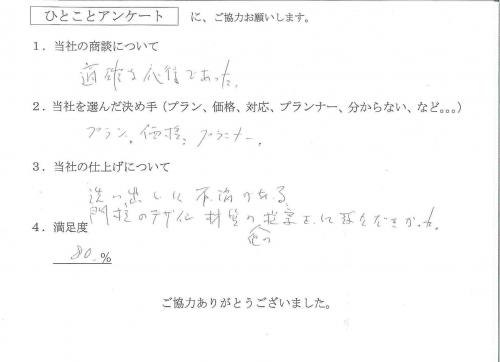 ひとことアンケート に、ご協力お願いします。
1．当社の商談について
適確な応待であった。
2．当社を選んだ決め手（プラン、価格、対応、プランナー、分からない、など。。。）
プラン。価格。プランナー。
3．当社の仕上げについて
洗い出しに不満がある。
門柱のデザイン 材質の提案をして
他の
4．満足度
80.%
ご協力ありがとうございました。